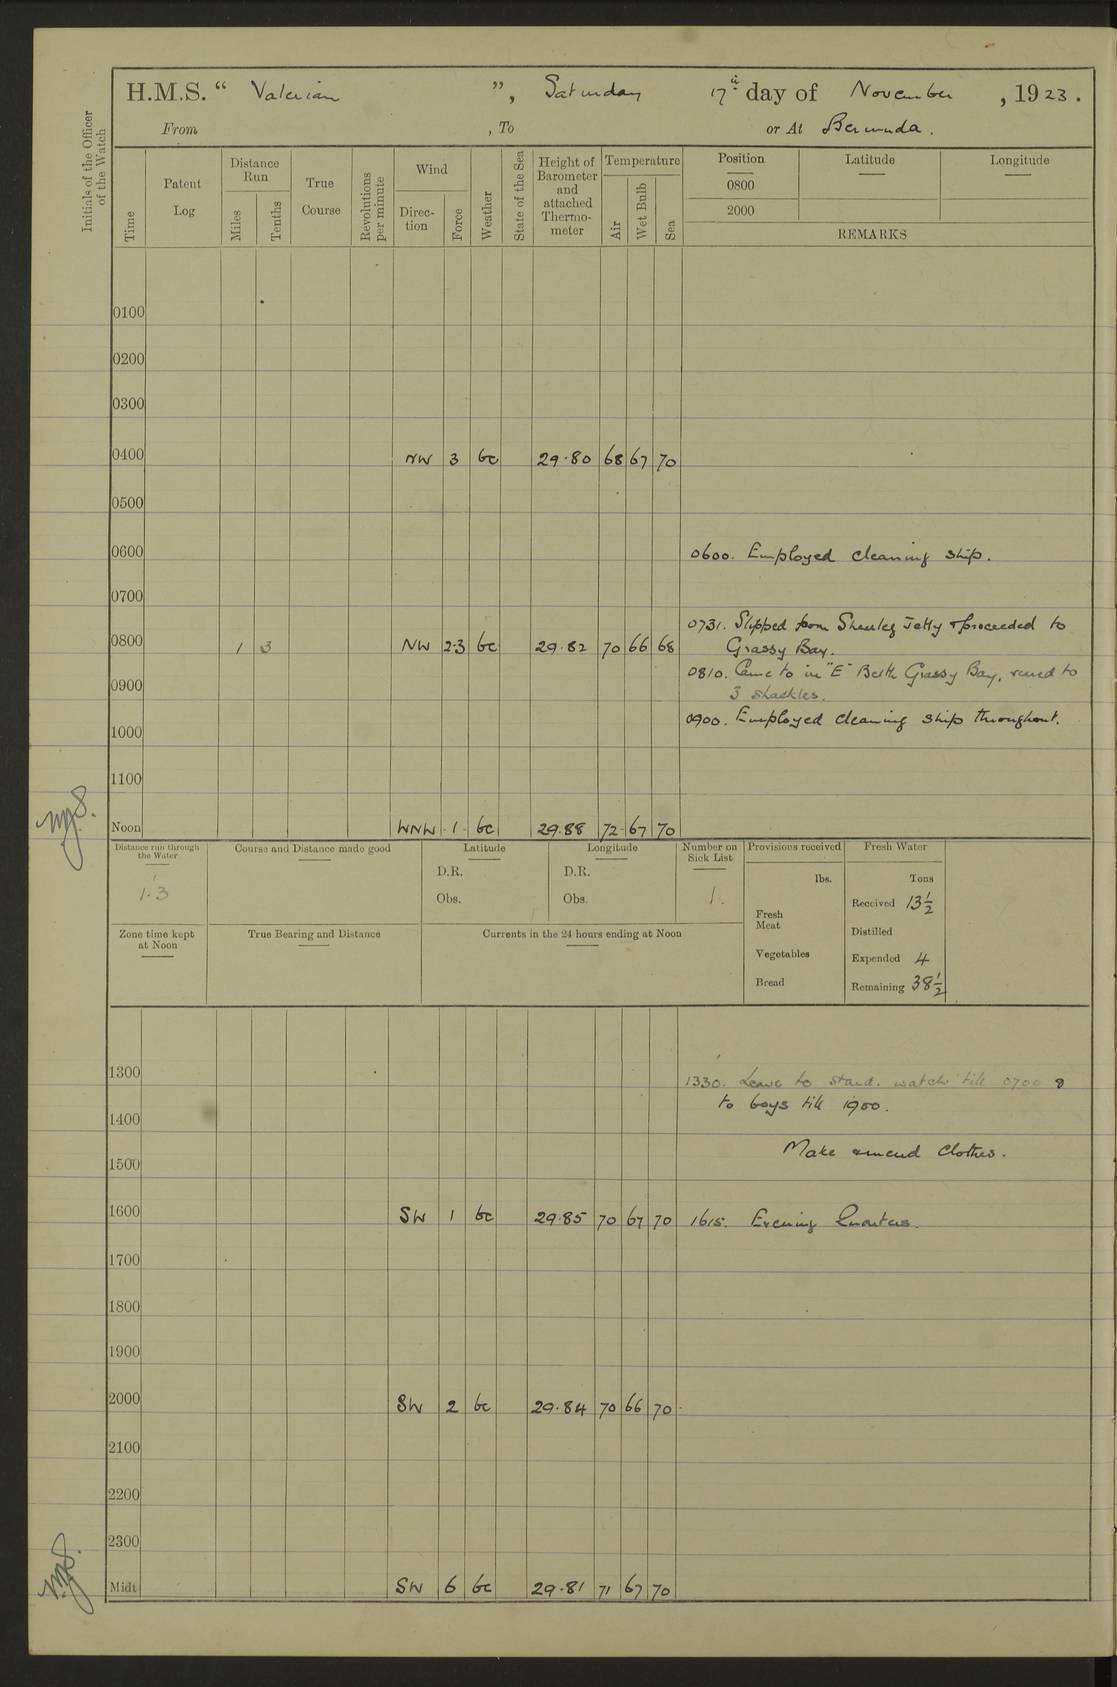 H.M.S. “ Valerian ”, Saturday 17th day of November, 1923.
From , To or At Bermuda.
Initials of the Officer of the Watch
Time
Patent Log
Distance Run
Miles
Tenths
True Course
Revolutions per minute
Wind
Direction
Force
Weather
State of the Sea
Height of Barometer and attached Thermometer
Temperature
Air
Wet Bulb
Sea
Position
Latitude
Longitude
0800
2000
REMARKS
0100
0200
0300
0400 NW 3 bc 29.80 68 67 70
0500
0600 0600. Employed cleaning ship.
0700
0731. Slipped from Sheerleg Jetty & proceeded to
0800 1 3 NW 2-3 bc 29.82 70 66 68 Grassy Bay.
0810. Came to in "E" Berth Grassy Bay, veered to
0900 3 shackles.
0900. Employed cleaning ship throughout.
1000
1100
Noon WNW 1 bc 29.88 72 67 70
Distance run through the Water
1.3
Course and Distance made good
Latitude
D.R.
Obs.
Longitude
D.R.
Obs.
Number on Sick List
1.
Provisions received
lbs.
Fresh Meat
Vegetables
Bread
Fresh Water
Tons
Received 13½
Distilled
Expended 4
Remaining 38½
Zone time kept at Noon
True Bearing and Distance
Currents in the 24 hours ending at Noon
1300 1330. Leave to starb. watch till 0700 &
to boys till 1900.
1400
Make & mend clothes.
1500
1600 SW 1 bc 29.85 70 67 70 1615. Evening Quarters.
1700
1800
1900
2000 SW 2 bc 29.84 70 66 70
2100
2200
2300
Midt SW 6 bc 29.81 71 67 70